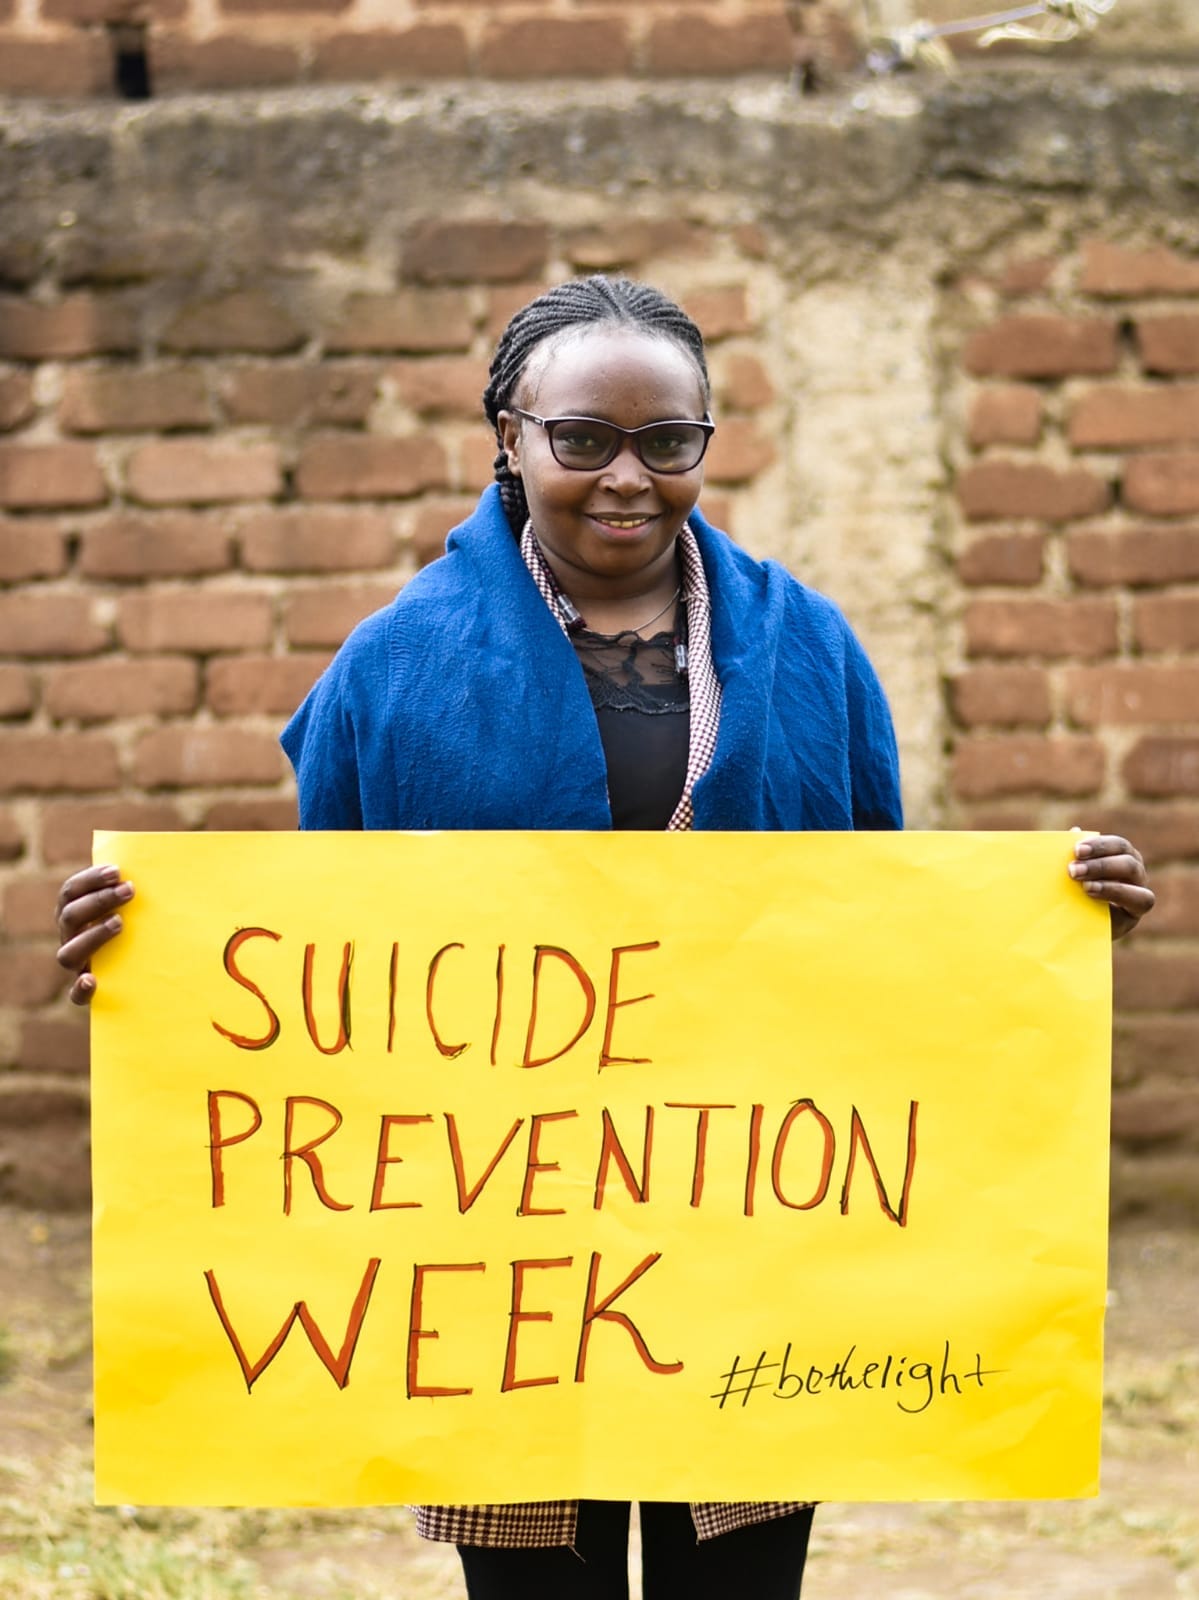 SUICIDE
PREVENTION
WEEK
#bethelight